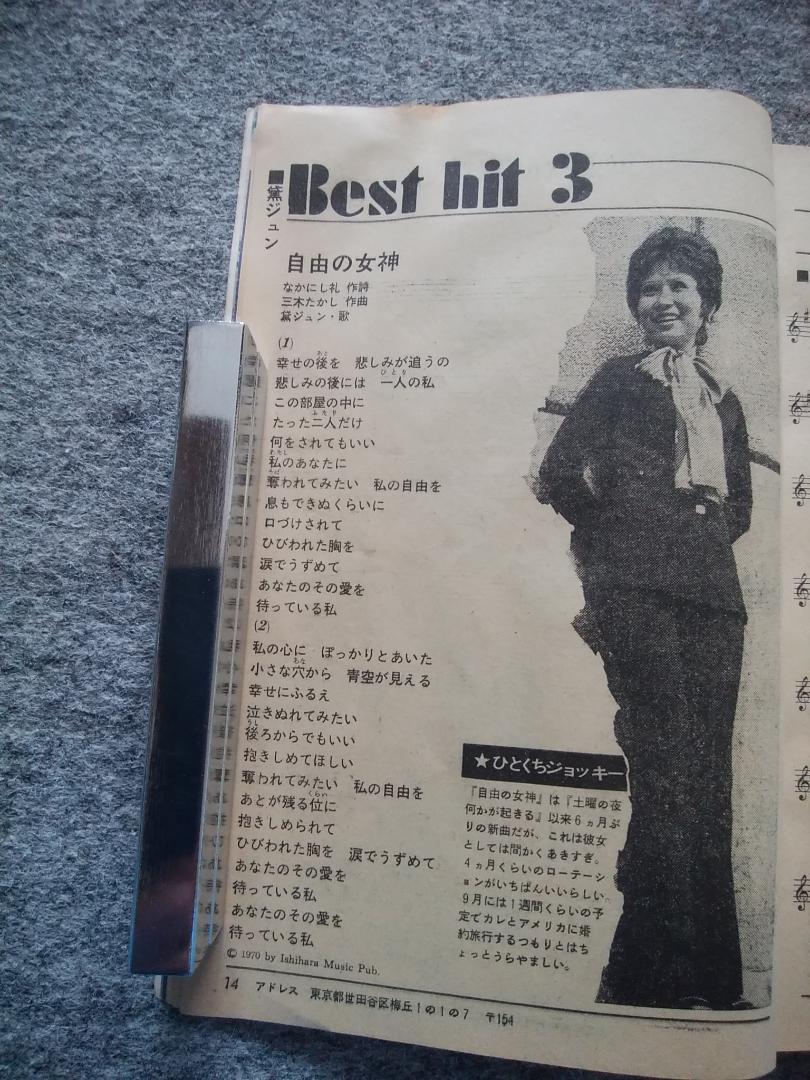 Best hit 3
■黛ジュン
自由の女神
なかにし礼 作詩
三木たかし 作曲
黛ジュン・歌
(1)
幸せの後を 悲しみが追うの
悲しみの後には 一人の私
この部屋の中に
たった二人だけ
何をされてもいい
私のあなたに
奪われてみたい 私の自由を
息もできぬくらいに
口づけされて
ひびわれた胸を
涙でうずめて
あなたのその愛を
待っている私
(2)
私の心に ぽっかりとあいた
小さな穴から 青空が見える
幸せにふるえ
泣きぬれてみたい
後ろからでもいい
抱きしめてほしい
奪われてみたい 私の自由を
あとが残る位に
抱きしめられて
ひびわれた胸を 涙でうずめて
あなたのその愛を
待っている私
あなたのその愛を
待っている私
© 1970 by Ishihara Music Pub.
★ひとくちジョッキー
『自由の女神』は『土曜の夜
何かが起きる』以来6ヵ月ぶ
りの新曲だが、これは彼女
としては間かくあきすぎ。
4ヵ月くらいのローテーシ
ョンがいちばんいいらしい。
9月には1週間くらいの予
定でカレとアメリカに婚
約旅行するつもりとはち
ょっとうらやましい。
14 アドレス 東京都世田谷区梅丘1の1の7 〒154